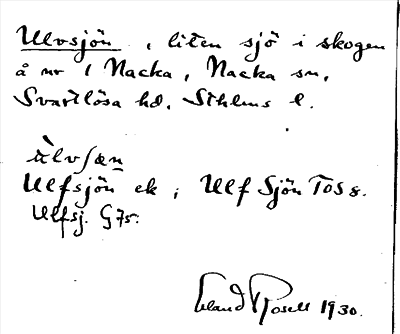 Ulvsjön, liten sjö i skogen
å nr 1 Nacka, Nacka sn,
Svartlösa hd, Sthlms l.
Ulfsjön ek; Ulf Sjön TOS 8.
Ulfsj. G 75.
Erland Rosell 1930.